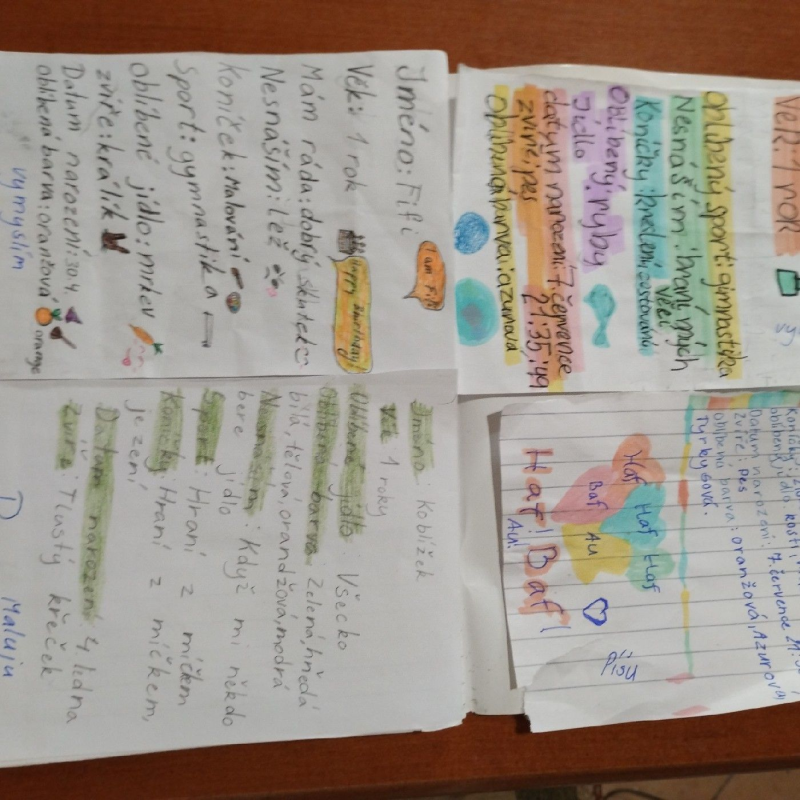 Jméno: Fifi
I am Fifi
Věk: 1 rok
Happy Birthday!
Mám ráda: dobrý skutek
Nesnáším: lež
Koníček: Malování
Sport: gymnastika
Oblíbené jídlo: mrkev
zvíře: králík
Datum narození: 30.4.
oblíbená barva: oranžová
orange
vymyslím
Věk 1 rok
Oblíbený sport: gimnastika
Nesnáším: braní mých
věcí
Koníčky: kreslení, cestování
Oblíbený: ryby
Jídlo
datum narození: 7. července
21:35, '49
zvíře: pes
Oblíbená barva: azurová
Jméno: Koblížek
Věk 1 roky
Oblíbené jídlo: Všecko
Oblíbená barva: Zelená, hnědá
bílá, tělová, orandžová, modrá
Nesnáším: Když mi někdo
bere jídlo
Sport: Hraní z míčkem
Koníčky: Hraní z míčkem,
jezení
Datum narození: 4 ledna
Zvíře: Tlustý křeček
Maluju
oblíbené jídlo: kosti,
Datum narození: 7. července 21:
Zvíře: Pes
oblíbená barva: oranžová, Azurová,
Tyrkysová.
Haf
Haf
Haf
Baf
Au
Haf! Baf!
Au!
Píšu